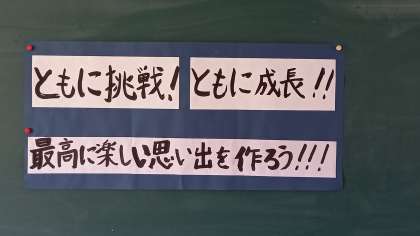 ともに挑戦! ともに成長!!
最高に楽しい思い出を作ろう!!!